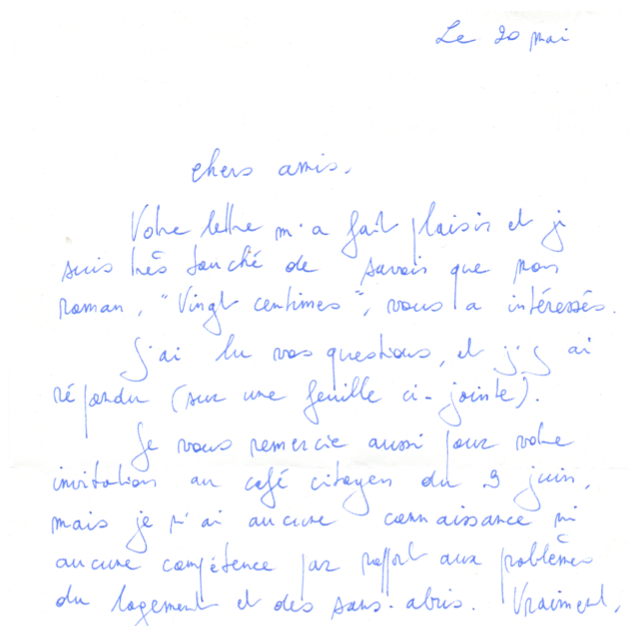 Le 20 mai
chers amis.
Votre lettre m'a fait plaisir et je
suis très touché de savoir que mon
roman, "Vingt centimes", vous a intéressés.
J'ai lu vos questions, et j'y ai
répondu (sur une feuille ci-jointe).
Je vous remercie aussi pour votre
invitation au café citoyen du 9 juin,
mais je n'ai aucune connaissance ni
aucune compétence par rapport aux problèmes
du logement et des sans-abris. Vraiment,